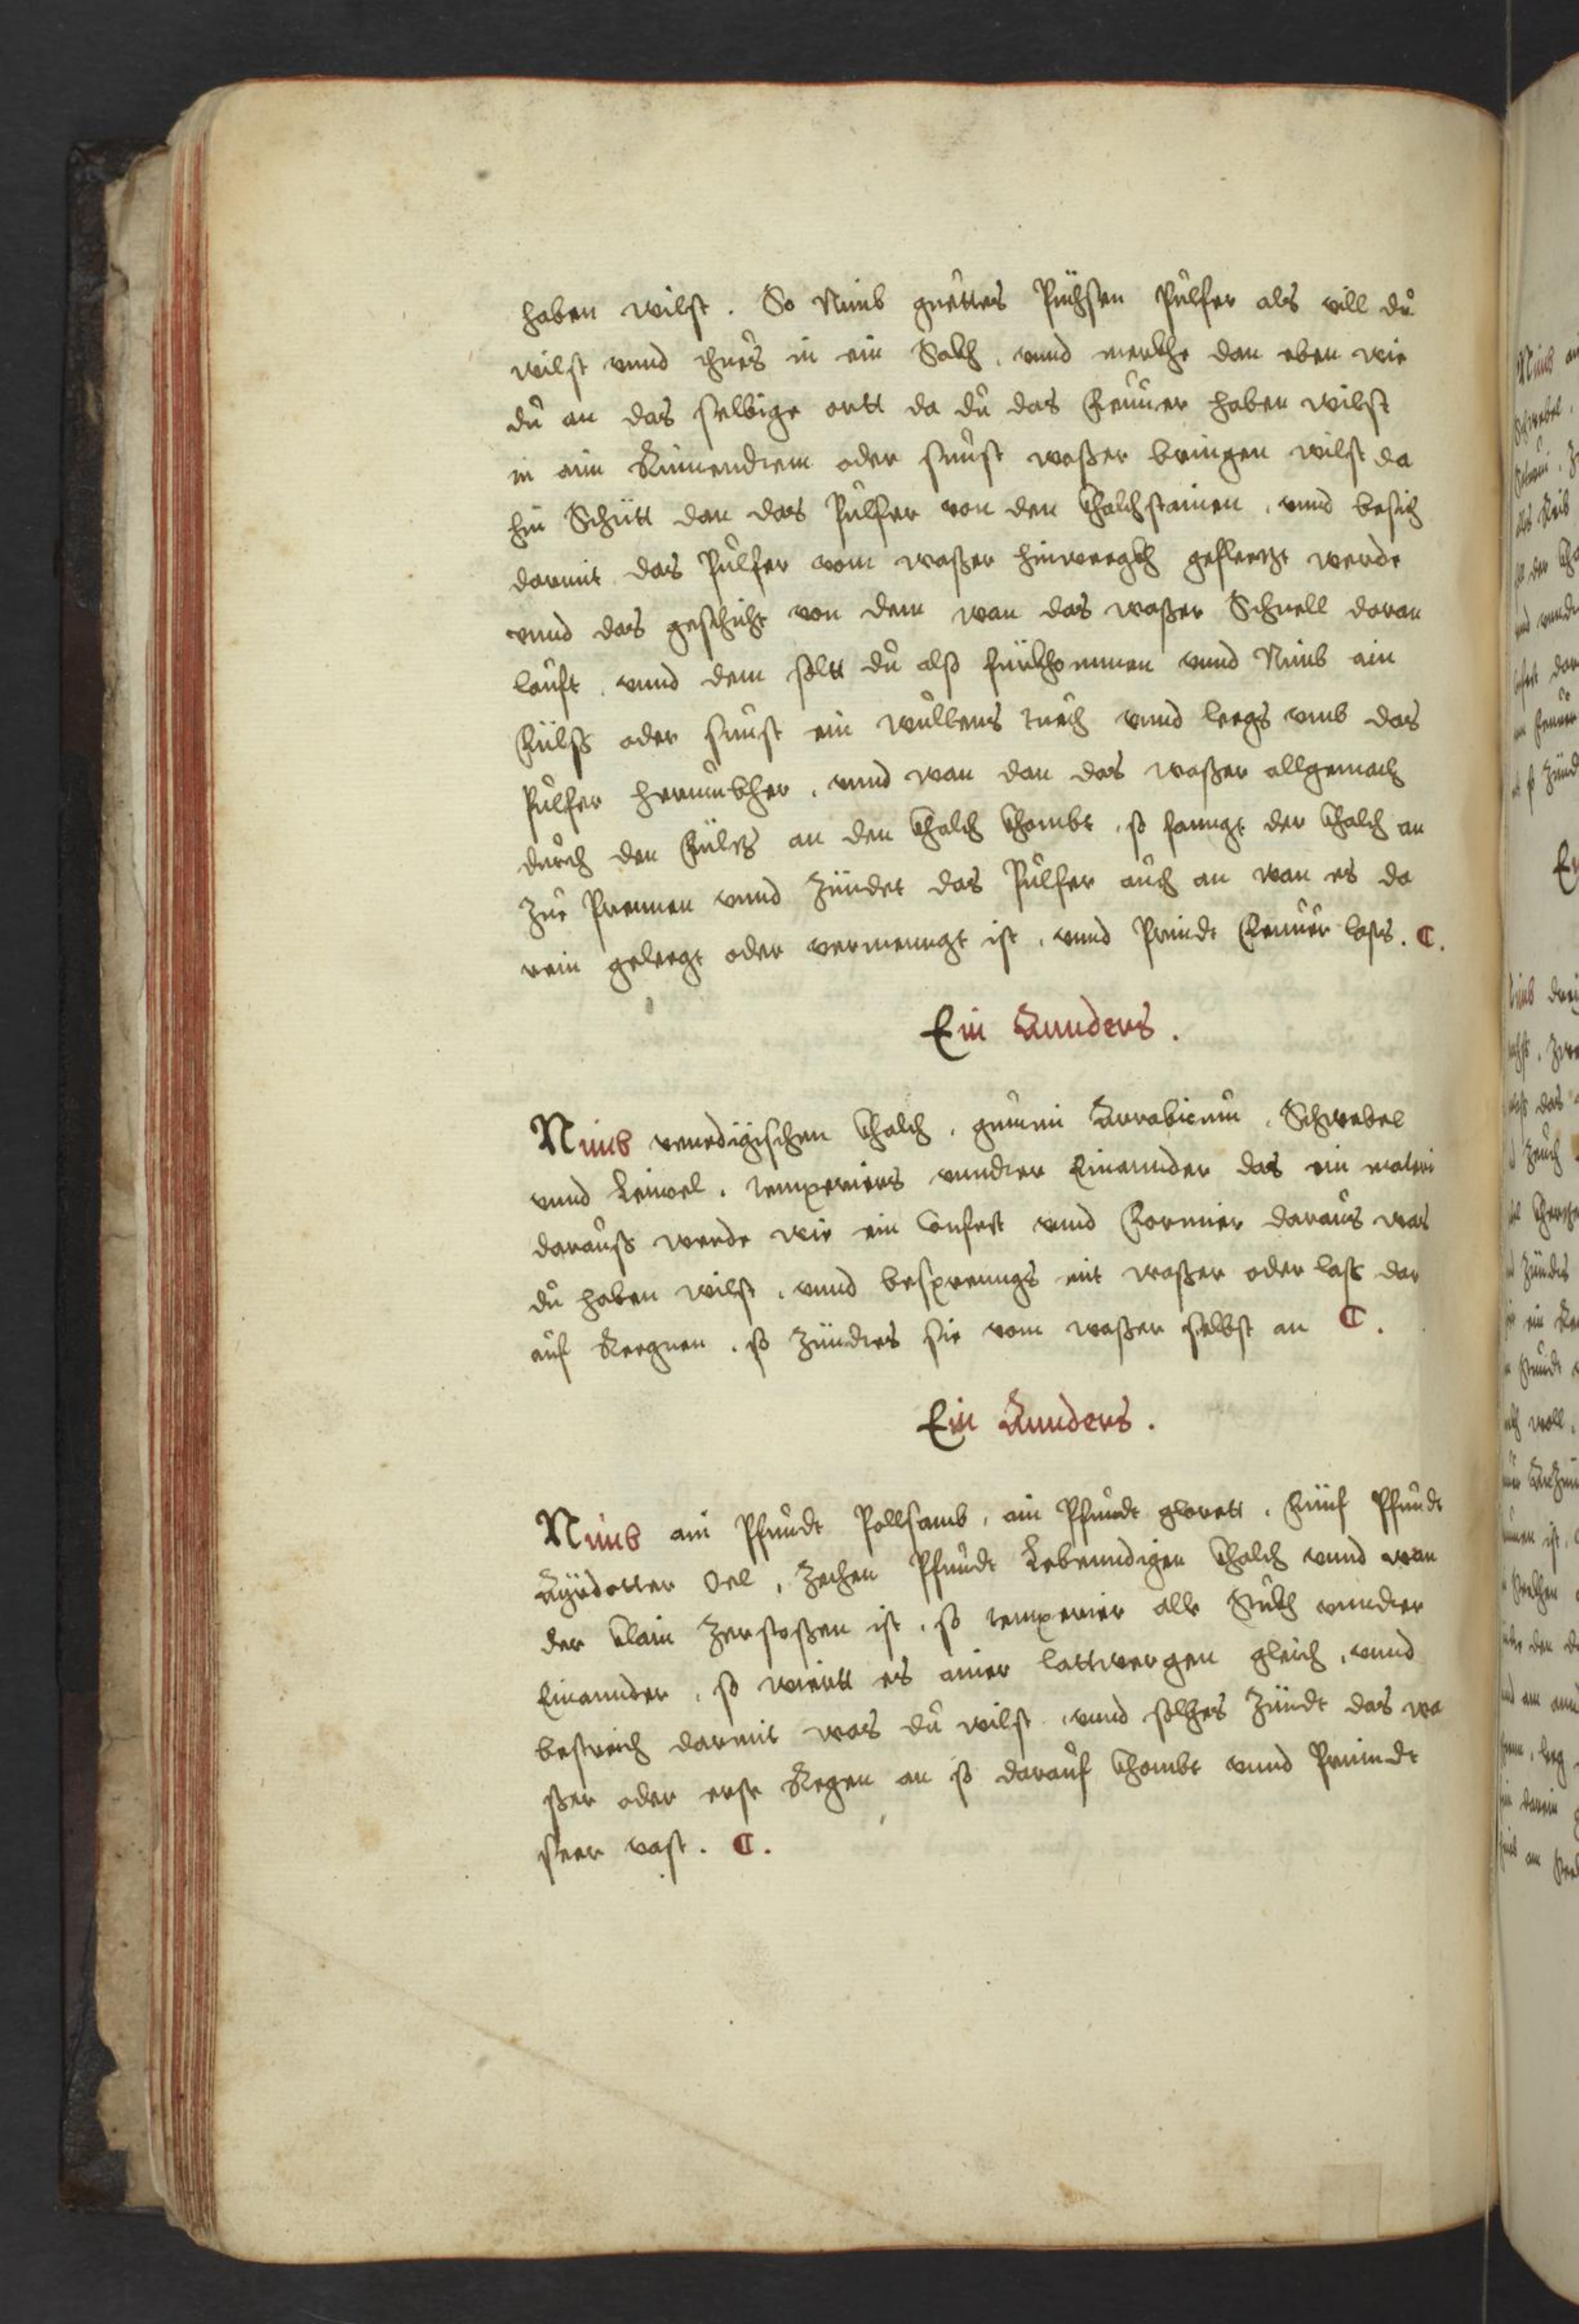 haben wilst. So Nimb guettes Pichsen Pulfer als vill du
wilst vnnd thues in ein Sakh, vnnd merkhe dan eben wie
du an das selbige ortt da du das Feuuer haben wilst
in ain Rinnendten oder sunst waßer bringen wilst da
hin Schütt dan das Pulfer von den khalchstainen, vnnd besich
darmit das Pulfer vom waßer hinweegkh gefleetzt werde
vnnd das geschicht von dem wan das waßer Schnell daran
lauft, vnnd dem solt du also fürkhommen vnnd Nimb ain
Fülß oder sunst ein wullens tuech vnnd leegs vmb das
Pulfer herumbher, vnnd wan dan das waßer allgemach
durch den Fülß an den khalch khombt, so fanngt der khalch an
zue Prennen vnnd zündet das Pulfer auch an wan es da
rein geleegt oder vermenngt ist, vnnd Prindt Feuuer lests. C.
Ein Annders.
Nimb venedigischen khalch, gummi Arrabicum, Schwebel
vnnd Leinoel, temperiers vnndter Einannder das ein materi
darauß werde wie ein Confect vnnd Formier daraus was
du haben wilst, vnnd besprenngs mit waßer oder laß dar
auf Reegnen, so zündts sie vom waßer selbst an C.
Ein Annders.
Nimb ain Pfundt Pallsamb, ain Pfundt glorett, Fünf Pfundt
Ayrdotter Oel, zechen Pfundt Lebenndigen khalch vnnd wan
der klain zerstoßen ist, so temperier alle Stukh vnndter
Einannder, so wiertt es ainer lattwergen gleich, vnnd
bestreich darmit was du wilst, vnnd solches zündt das wa
ßer oder erste Regen an so darauf khombt vnnd Prinndt
seer vast. C.